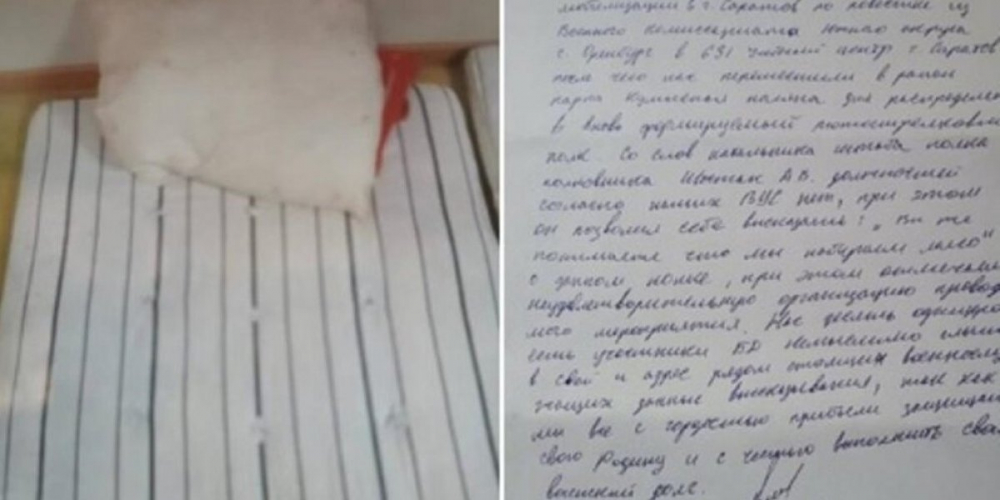 мобилизации в г. Саратов по повестке из
Военного Комиссариата Южного округа
г. Оренбург в 631 учебный центр г. Саратов
после чего нас переместили в район
для распределен
в вновь формируемый мотострелковый
полк. Со слов начальника штаба полка
полковника А.В. должностей
согласно наших ВУС нет, при этом
он позволил себе высказывание: „Вы же
понимаете что мы набираем мясо"
с данном полке, при этом
неудовлетворительную организацию провод
мого мероприятия. Нас десять
есть участники БД немыслимо слыш
в свой и адрес рядом стоящих военнослу
жащих данные высказывания, так как
мы все с гордостью прибыли защищат
свою Родину и с честью выполнить свой
воинский долг.